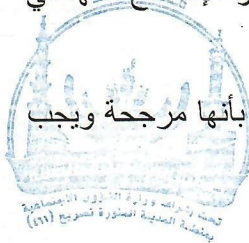 بأنها مرجحة ويجب
تحت إشراف وزارة الشؤون الاجتماعية
بمنطقة المدينة المنورة تصريح (٤٦١)